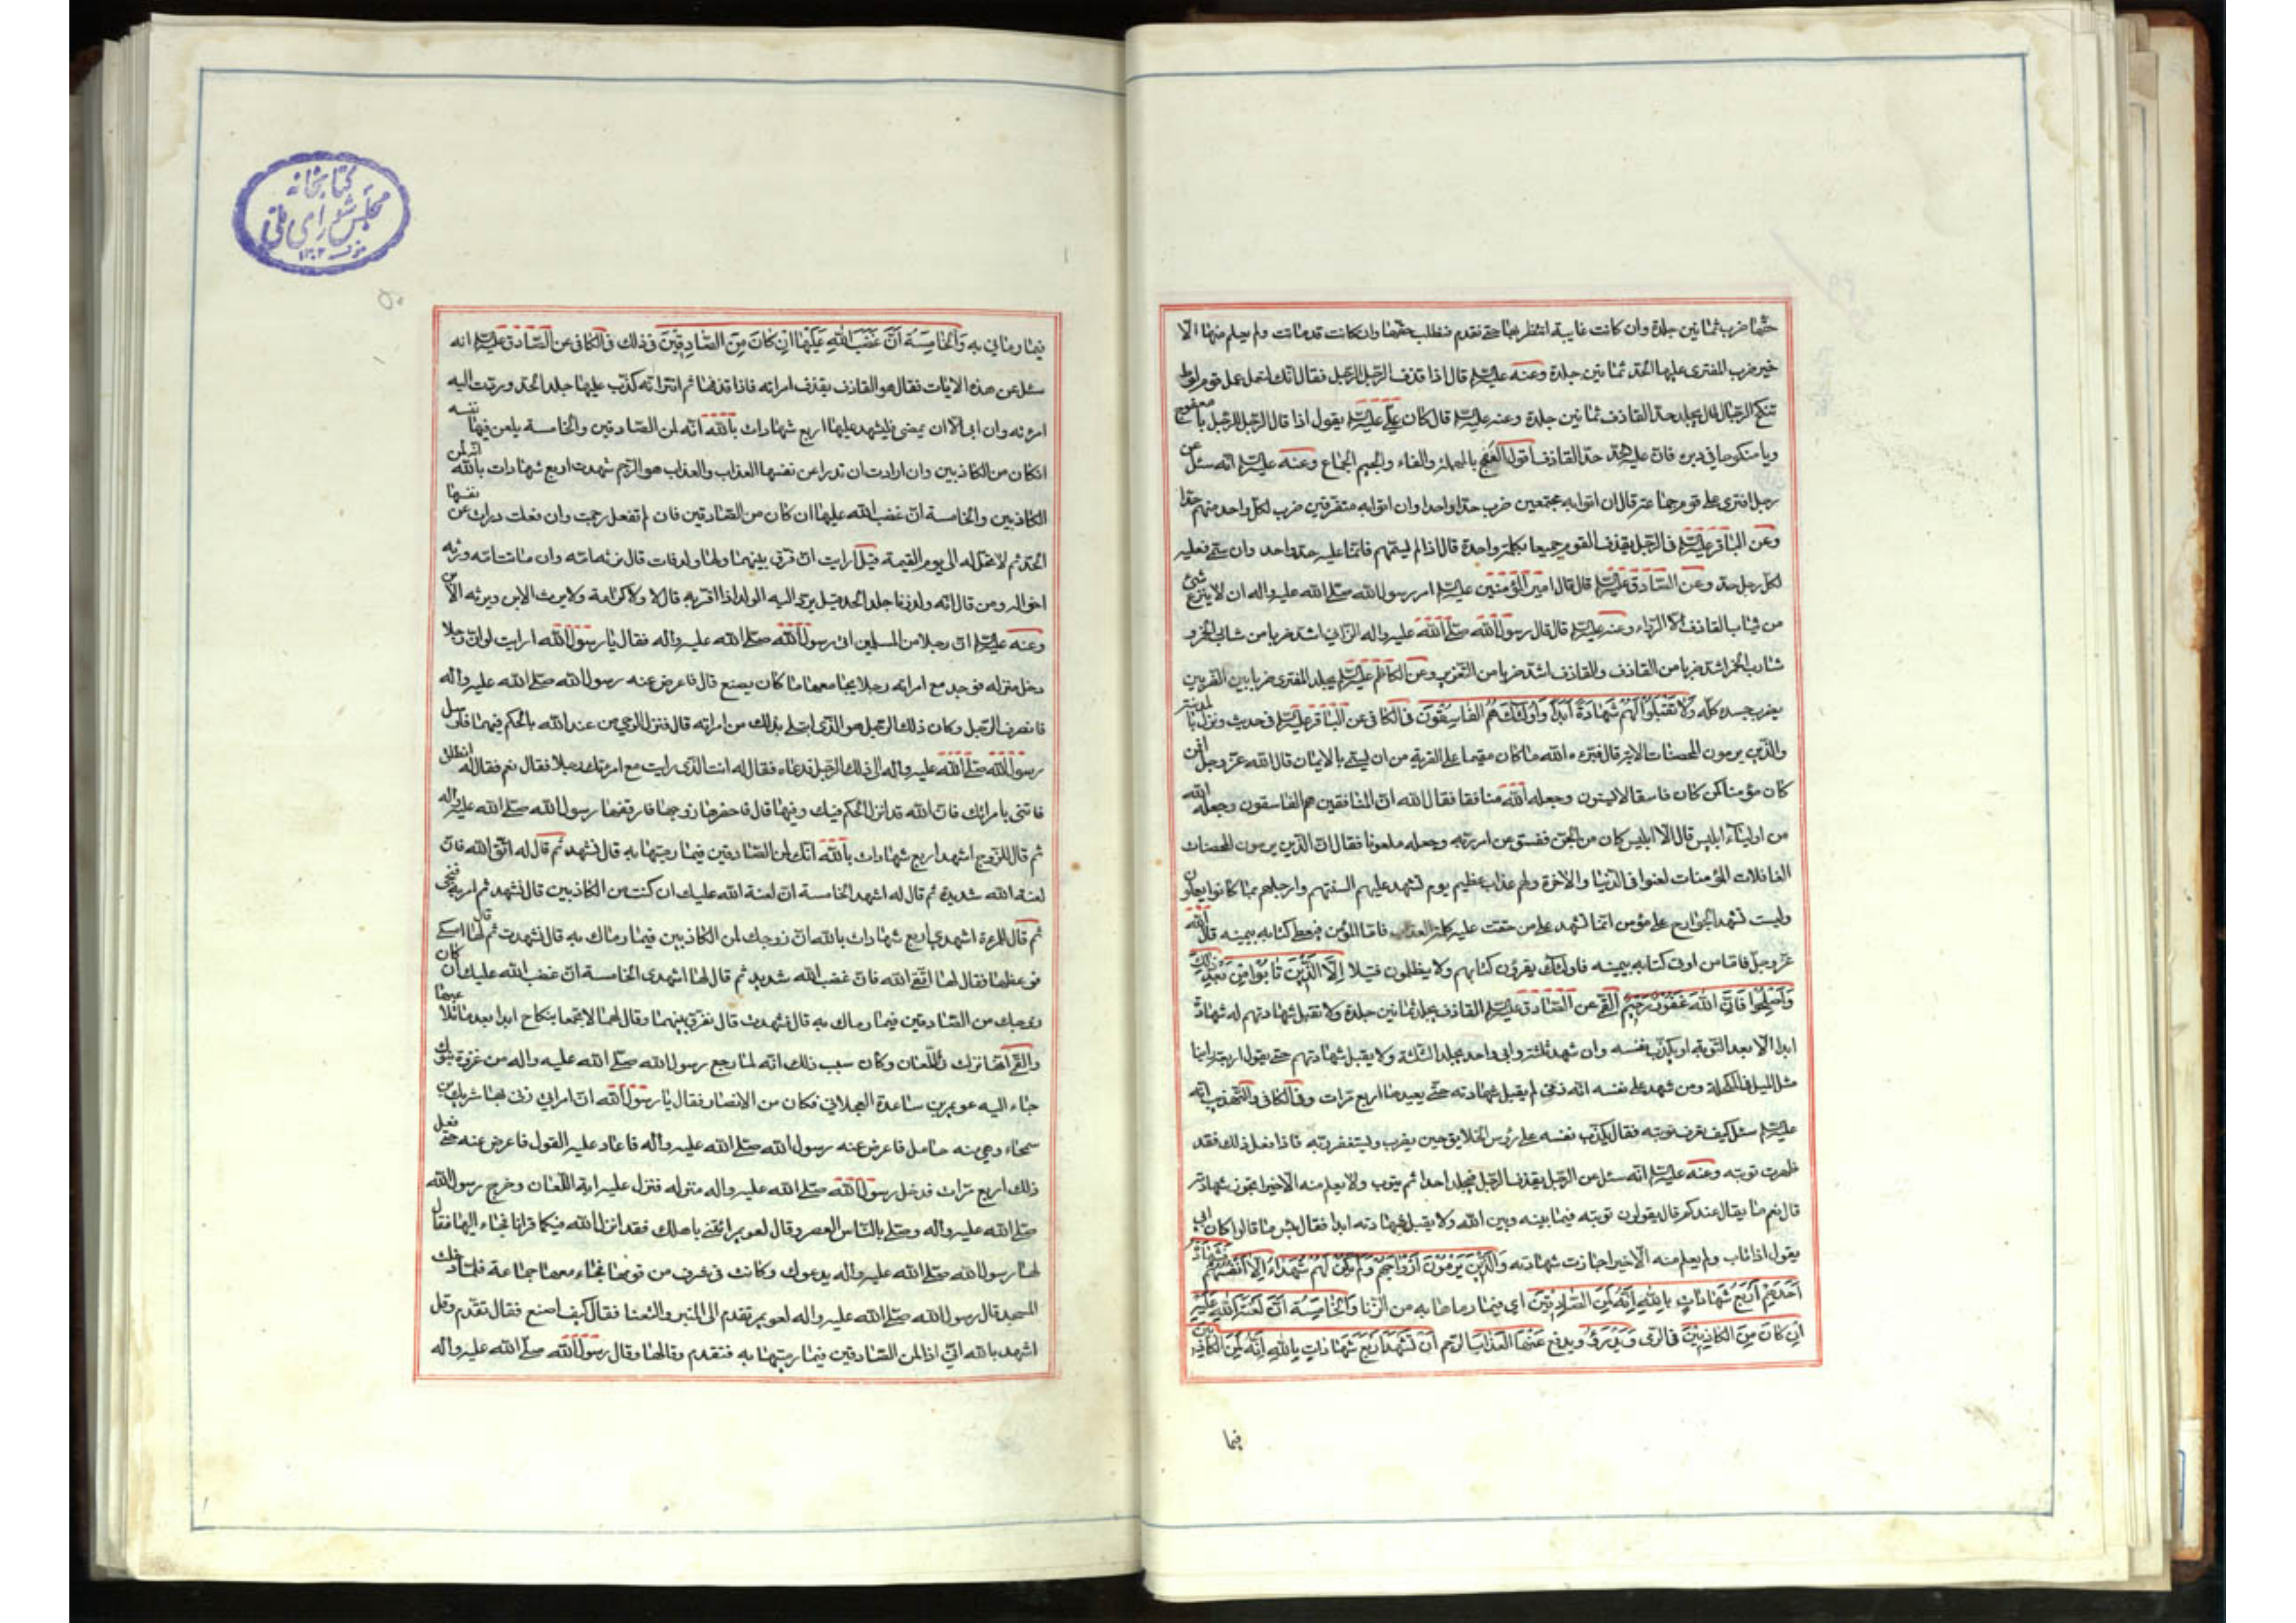 حقها ضرب ثمانين جلدة وان كانت غايبة انتظر بها حتى تقدم فتطلب حقها وان كانت قد ماتت ولم يعلم منها الا
خير ضرب المفترى عليها الحد ثمانين جلدة وعنه عليه السلام قال اذا قذف الرجل الرجل فقال انك لتعمل عمل قوم لوط
تنكح الرجال قال يجلد حد القاذف ثمانين جلدة وعنه عليه السلام قال كان علي عليه السلام يقول اذا قال الرجل للرجل يا معفوج
ويا منكوحا في دبره فان عليه الحد حد القاذف اقول العفج بالمهملة والفاء والجيم الجماع وعنه عليه السلام انه سئل عن
رجل افترى على قوم جماعة قال ان اتوا به مجتمعين ضرب حدا واحدا وان اتوا به متفرقين ضرب لكل واحد منهم حدا
وعن الباقر عليه السلام في الرجل يقذف القوم جميعا بكلمة واحدة قال اذا لم يسمهم فانما عليه حد واحد وان سمى فعليه
لكل رجل حد وعن الصادق عليه السلام قال قال امير المؤمنين عليه السلام امر رسول الله صلى الله عليه واله ان لا ينزع شئ
من ثياب القاذف الا الرداء وعنه عليه السلام قال قال رسول الله صلى الله عليه واله الزاني اشد ضربا من شارب الخمر و
شارب الخمر اشد ضربا من القاذف والقاذف اشد ضربا من التعزير وعن الكاظم عليه السلام يجلد المفترى ضربا بين الضربين
يضرب جسده كله وَلا تَقْبَلُوا لَهُمْ شَهادَةً أَبَداً وَأُولئِكَ هُمُ الفاسِقُونَ في الكافي عن الباقر عليه السلام في حديث ونزل بالمدينة
والذين يرمون المحصنات الاية قال فبرءه الله ما كان مقيما على الفرية من ان يسمى بالايمان قال الله عز وجل افمن
كان مؤمنا كمن كان فاسقا لا يستوون وجعله الله منافقا فقال الله ان المنافقين هم الفاسقون وجعله الله
من اولياء ابليس قال الا ابليس كان من الجن ففسق عن امر ربه وجعله ملعونا فقال ان الذين يرمون المحصنات
الغافلات المؤمنات لعنوا في الدنيا والاخرة ولهم عذاب عظيم يوم تشهد عليهم السنتهم وارجلهم بما كانوا يعملون
وليست تشهد الجوارح على مؤمن انما تشهد على من حقت عليه كلمة العذاب فاما المؤمن فيعطى كتابه بيمينه قال الله
عز وجل فاما من اوتى كتابه بيمينه فاولئك يقرؤن كتابهم ولا يظلمون فتيلا إِلَّا الَّذينَ تابُوا مِنْ بَعْدِ ذلِكَ
وَأَصْلَحُوا فَإِنَّ اللهَ غَفُورٌ رَحيمٌ القمي عن الصادق عليه السلام القاذف يجلد ثمانين جلدة ولا تقبل شهادتهم له شهادة
ابدا الا بعد التوبة او يكذب نفسه وان شهد ثلثة وابى واحد يجلد الثلثة ولا يقبل شهادتهم حتى يقول اربعة راينا
مثل الميل في المكحلة ومن شهد على نفسه انه زنى لم يقبل شهادته حتى يعيدها اربع مرات وفي الكافي والتهذيب انه
عليه السلام سئل كيف تعرف توبته فقال يكذب نفسه على رؤس الخلايق حين يضرب ويستغفر ربه فاذا فعل ذلك فقد
ظهرت توبته وعنه عليه السلام انه سئل عن الرجل يقذف الرجل فيجلد احدا ثم يتوب ولا يعلم منه الا خيرا يجوز شهادته
قال نعم ما يقال عندكم قال يقولون توبته فيما بينه وبين الله ولا يقبل شهادته ابدا فقال بئس ما قالوا كان ابي
يقول اذا تاب ولم يعلم منه الا خيرا جازت شهادته وَالَّذينَ يَرْمُونَ أَزْواجَهُمْ وَلَمْ يَكُنْ لَهُمْ شُهَداءُ إِلَّا أَنْفُسُهُمْ فَشَهادَةُ
أَحَدِهِمْ أَرْبَعُ شَهاداتٍ بِاللهِ إِنَّهُ لَمِنَ الصَّادِقينَ اى فيما رماها به من الزنا وَالخامِسَةُ أَنَّ لَعْنَتَ اللهِ عَلَيْهِ
إِنْ كانَ مِنَ الكاذِبينَ في الرمى وَيَدْرَؤُ ويدفع عَنْهَا العَذابَ الرجم أَنْ تَشْهَدَ أَرْبَعَ شَهاداتٍ بِاللهِ إِنَّهُ لَمِنَ الكاذِبينَ
فيما
كتابخانه
مجلس شورای ملی
فيما رماني به وَالخامِسَةَ أَنَّ غَضَبَ اللهِ عَلَيْها إِنْ كانَ مِنَ الصَّادِقينَ في ذلك في الكافي عن الصادق عليه السلام انه
سئل عن هذه الايات فقال هو القاذف يقذف امراته فاذا قذفها ثم اقر انه كذب عليها جلد الحد وردت اليه
امرءته وان ابى الا ان يمضى فليشهد عليها اربع شهادات بالله انه لمن الصادقين والخامسة يلعن فيها نفسه
انكان من الكاذبين وان ارادت ان تدرا عن نفسها العذاب والعذاب هو الرجم شهدت اربع شهادات بالله انه لمن
الكاذبين والخامسة ان غضب الله عليها ان كان من الصادقين فان لم تفعل رجمت وان فعلت درات عن نفسها
الحد ثم لا تحل له الى يوم القيمة قيل ارايت ان فرق بينهما ولها ولد فمات قال ترثه امه وان ماتت امه ورثه
اخواله ومن قال انه ولد زنا جلد الحد قيل يرد اليه الولد اذا اقر به قال لا ولا كرامة ولا يرث الابن ويرثه الابن
وعنه عليه السلام ان رجلا من المسلمين اتى رسول الله صلى الله عليه واله فقال يا رسول الله ارايت لو ان رجلا
دخل منزله فوجد مع امراته رجلا يجامعها ما كان يصنع قال فاعرض عنه رسول الله صلى الله عليه واله
فانصرف الرجل وكان ذلك الرجل هو الذى ابتلى بذلك من امراته قال فنزل الوحي من عند الله بالحكم فيهما فارسل
رسول الله صلى الله عليه واله الى ذلك الرجل فدعاه فقال له انت الذى رايت مع امرءتك رجلا فقال نعم فقال له انطلق
فاتنى بامراتك فان الله قد انزل الحكم فيك وفيها قال فاحضرها زوجها فاوقفها رسول الله صلى الله عليه واله
ثم قال للزوج اشهد اربع شهادات بالله انك لمن الصادقين فيما رميتها به قال فشهد ثم قال له اتق الله فان
لعنة الله شديدة ثم قال له اشهد الخامسة ان لعنة الله عليك ان كنت من الكاذبين قال فشهد ثم امر به فنحى
ثم قال للمرءة اشهدي اربع شهادات بالله ان زوجك لمن الكاذبين فيما رماك به قال فشهدت ثم قال لها امسكي
فوعظها فقال لها اتقي الله فان غضب الله شديد ثم قال لها اشهدى الخامسة ان غضب الله عليك ان كان
زوجك من الصادقين فيما رماك به قال فشهدت قال ففرق بينهما وقال لهما لا تجتمعا بنكاح ابدا بعد ما تلاعنتما
والقمي انها نزلت في اللعان وكان سبب ذلك انه لما رجع رسول الله صلى الله عليه واله من غزوة تبوك
جاء اليه عويمر بن ساعدة العجلاني فكان من الانصار فقال يا رسول الله ان امراتي زنى بها شريك بن
سمحاء وهي منه حامل فاعرض عنه رسول الله صلى الله عليه واله فاعاد عليه القول فاعرض عنه حتى فعل
ذلك اربع مرات فدخل رسول الله صلى الله عليه واله منزله فنزل عليه اية اللعان وخرج رسول الله
صلى الله عليه واله وصلى بالناس العصر وقال لعويمر ائتني باهلك فقد انزل الله فيكما قرانا فجاء اليها فقال
لها رسول الله صلى الله عليه واله يدعوك وكانت في شرف من قومها فجاء معها جماعة فلما دخلت
المسجد قال رسول الله صلى الله عليه واله لعويمر تقدم الى المنبر والتعنا فقال كيف اصنع فقال تقدم وقل
اشهد بالله اني اذا لمن الصادقين فيما رميتها به فتقدم وقالها وقال رسول الله صلى الله عليه واله